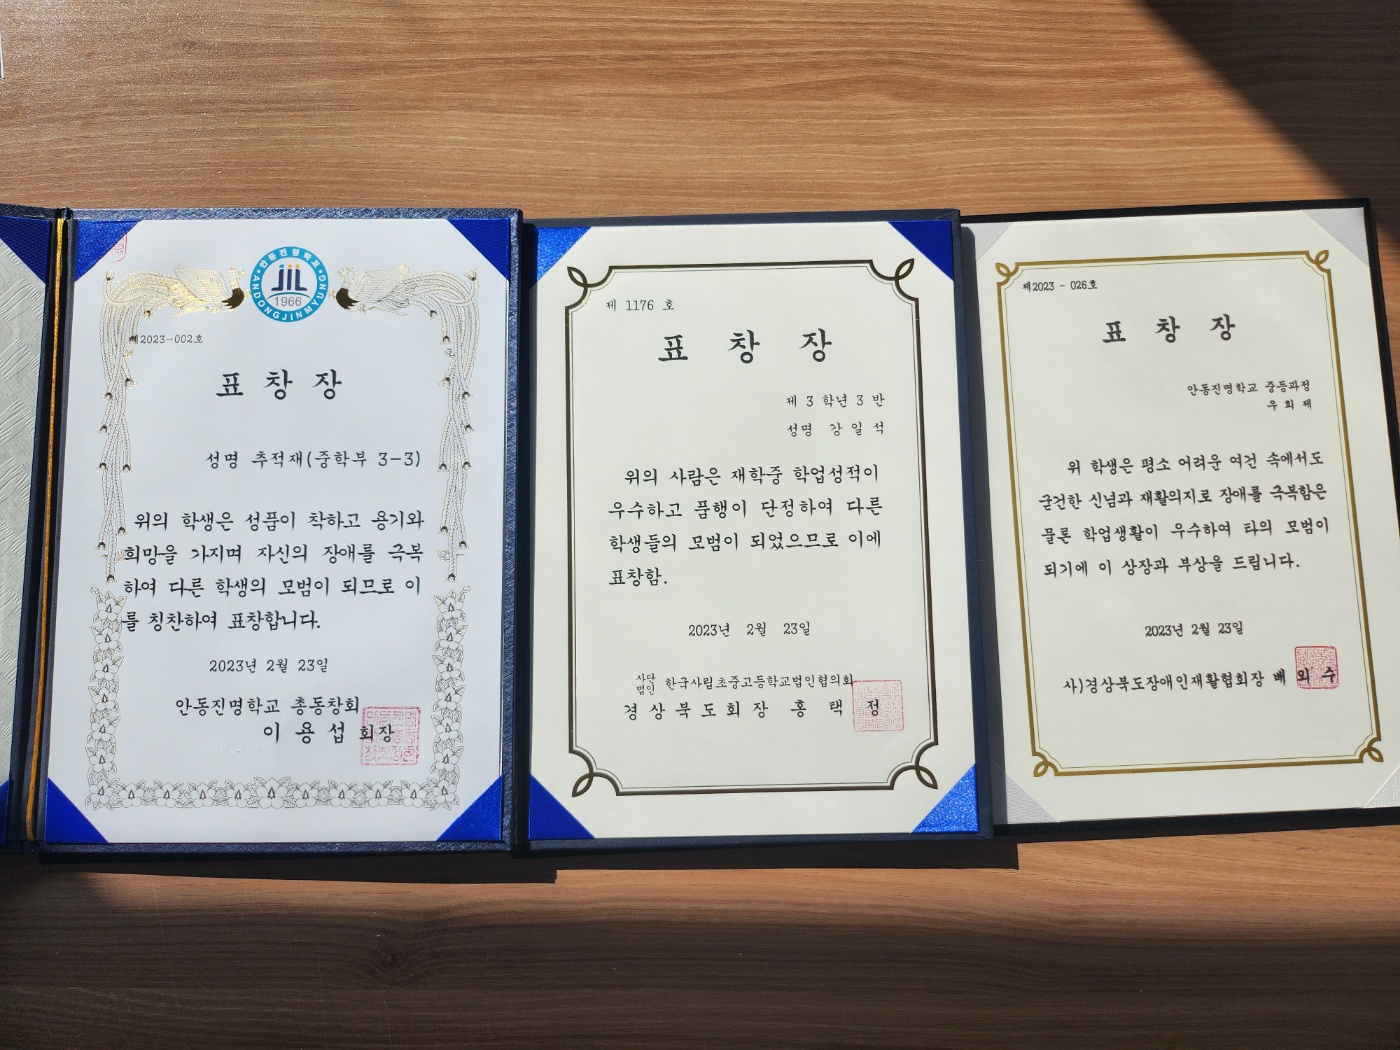 안동진명학교
ANDONGJINMYUNG
JIL
1966
제2023-002호
표 창 장
성명 추적재(중학부 3-3)
위의 학생은 성품이 착하고 용기와
희망을 가지며 자신의 장애를 극복
하여 다른 학생의 모범이 되므로 이
를 칭찬하여 표창합니다.
2023년 2월 23일
안동진명학교 총동창회
이 용 섭 회장
제 1176 호
표 창 장
제 3 학년 3 반
성명 강 일 석
위의 사람은 재학중 학업성적이
우수하고 품행이 단정하여 다른
학생들의 모범이 되었으므로 이에
표창함.
2023년 2월 23일
사단법인 한국사립초중고등학교법인협의회
경 상 북 도 회 장 홍 택 정
제2023 - 026호
표 창 장
안동진명학교 중등과정
우 희 제
위 학생은 평소 어려운 여건 속에서도
굳건한 신념과 재활의지로 장애를 극복함은
물론 학업생활이 우수하여 타의 모범이
되기에 이 상장과 부상을 드립니다.
2023년 2월 23일
사)경상북도장애인재활협회장 배 외 수